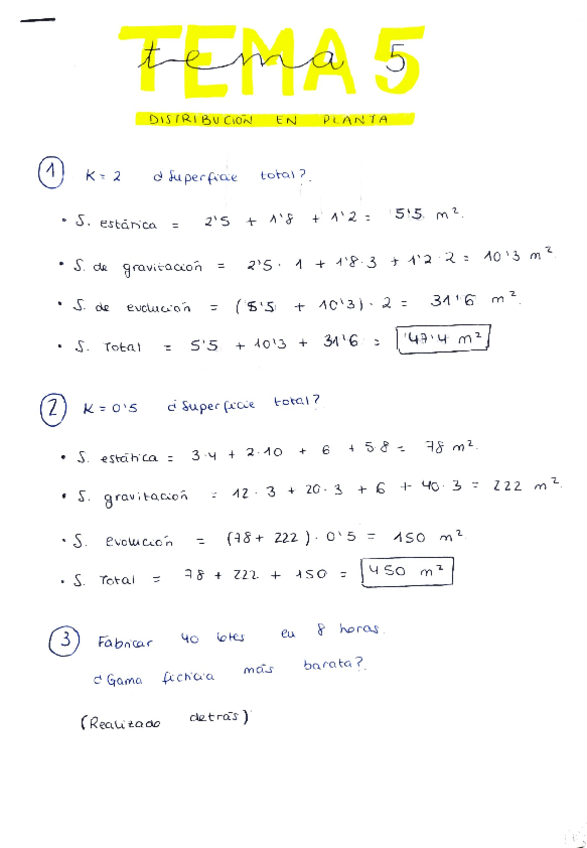 TEMA 5
tema 5
DISTRIBUCIÓN EN PLANTA
1 K = 2 ¿Superficie total?
• S. estática = 2'5 + 1'8 + 1'2 = 5'5 m².
• S. de gravitación = 2'5 · 1 + 1'8 · 3 + 1'2 · 2 = 10'3 m².
• S. de evolución = (5'5 + 10'3) · 2 = 31'6 m².
• S. Total = 5'5 + 10'3 + 31'6 = 47'4 m²
2 K = 0'5 ¿Superficie total?
• S. estática = 3·4 + 2·10 + 6 + 5·8 = 78 m².
• S. gravitación = 12 · 3 + 20 · 3 + 6 + 40 · 3 = 222 m².
• S. evolución = (78 + 222) · 0'5 = 150 m²
• S. Total = 78 + 222 + 150 = 450 m²
3 Fabricar 40 lotes en 8 horas.
¿Gama ficticia más barata?
(Realizado detrás)